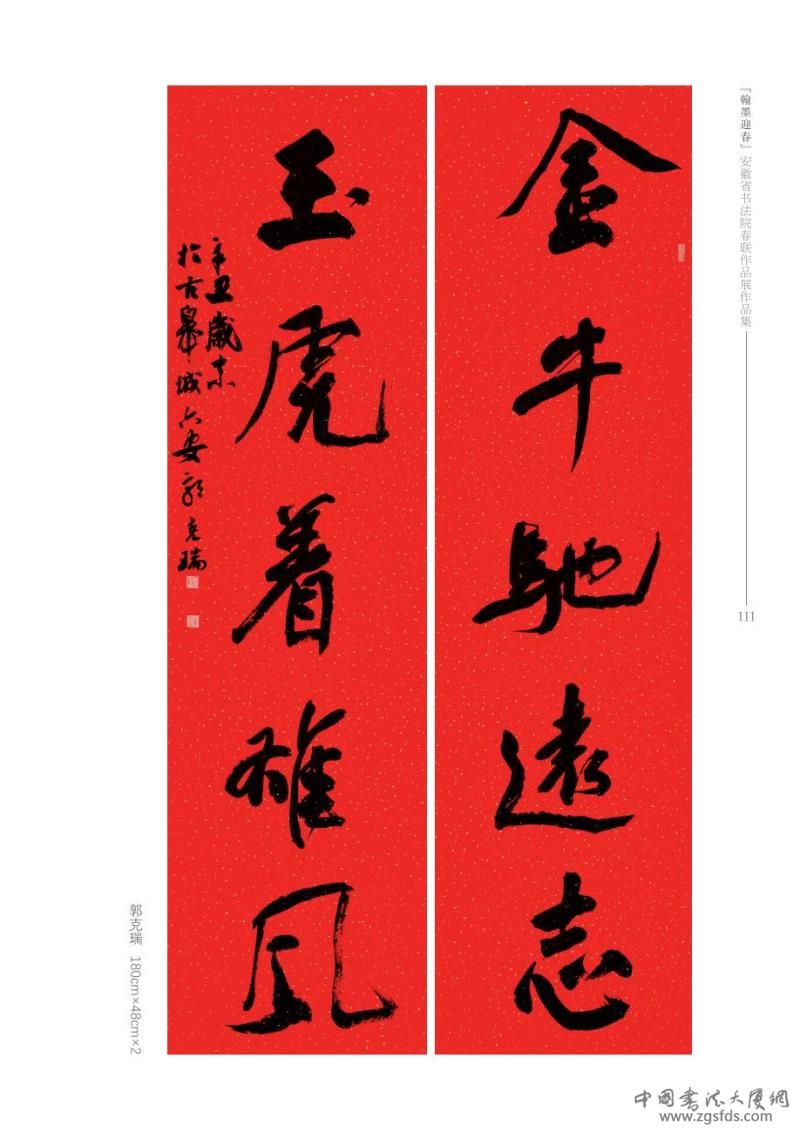 金牛馳遠志
玉虎着雄風
辛丑歲末
於古皋城六安郭克瑞
『翰墨迎春』安徽省书法院春联作品展作品集
111
郭克瑞 180cm×48cm×2
中国书法大厦網
www.zgsfds.com